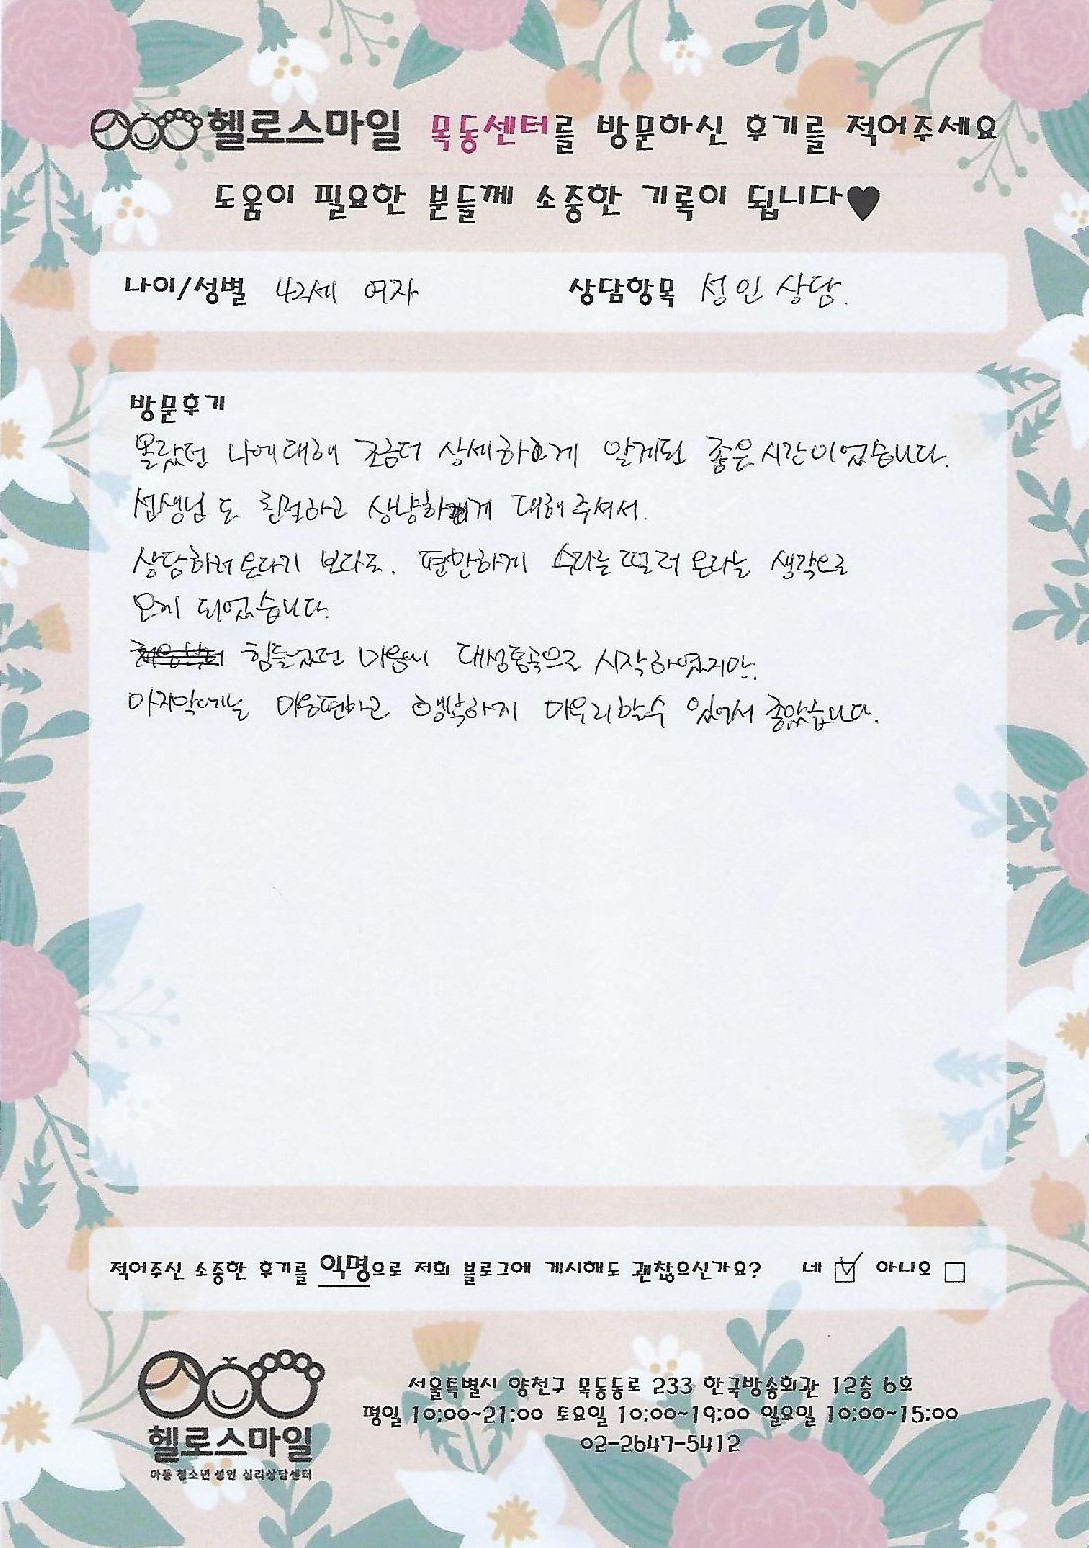 헬로스마일 목동센터를 방문하신 후기를 적어주세요
도움이 필요한 분들께 소중한 기록이 됩니다♥
나이/성별 42세 여자 상담항목 성인 상담.
방문후기
몰랐던 나에대해 조금더 상세하게 알게된 좋은 시간이었습니다.
선생님도 친절하고 상냥하게 대해주셔서.
상담하러 온다기 보다도. 편안하게 수다를 떨러 온다는 생각으로
오게 되었습니다.
힘들었던 마음이 대성통곡으로 시작하였지만.
마지막에는 마음편하고 행복하게 마무리할수 있어서 좋았습니다.
적어주신 소중한 후기를 익명으로 저희 블로그에 게시해도 괜찮으신가요? 네 ☑ 아니오 ☐
헬로스마일
아동 청소년 성인 심리상담센터
서울특별시 양천구 목동동로 233 한국방송회관 12층 6호
평일 10:00~21:00 토요일 10:00~19:00 일요일 10:00~15:00
02-2647-5412